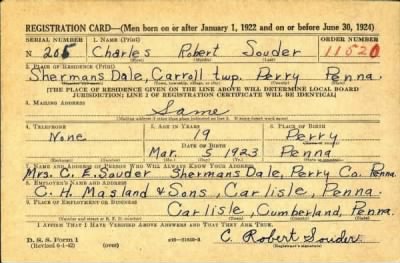 REGISTRATION CARD—(Men born on or after January 1, 1922 and on or before June 30, 1924)
SERIAL NUMBER 1. NAME (Print) ORDER NUMBER
N 205 Charles Robert Souder 11520
(First) (Middle) (Last)
2. PLACE OF RESIDENCE (Print)
Shermans Dale, Carroll twp. Perry Penna.
[THE PLACE OF RESIDENCE GIVEN ON THE LINE ABOVE WILL DETERMINE LOCAL BOARD
JURISDICTION; LINE 2 OF REGISTRATION CERTIFICATE WILL BE IDENTICAL]
3. MAILING ADDRESS
Same
[Mailing address if other than place indicated on line 2. If same insert word same]
4. TELEPHONE 5. AGE IN YEARS 6. PLACE OF BIRTH
None 19 Perry
DATE OF BIRTH
Mar. 5 1923 Penna
7. NAME AND ADDRESS OF PERSON WHO WILL ALWAYS KNOW YOUR ADDRESS
Mrs. C. E. Souder Shermans Dale, Perry Co. Penna.
8. EMPLOYER'S NAME AND ADDRESS
C. H. Masland & Sons, Carlisle, Penna.
9. PLACE OF EMPLOYMENT OR BUSINESS
Carlisle, Cumberland, Penna.
(Number and street or R. F. D. number) (Town) (County) (State)
I AFFIRM THAT I HAVE VERIFIED ABOVE ANSWERS AND THAT THEY ARE TRUE.
D. S. S. Form 1
(Revised 6-1-42) (over) C. Robert Souder
(Registrant's signature)